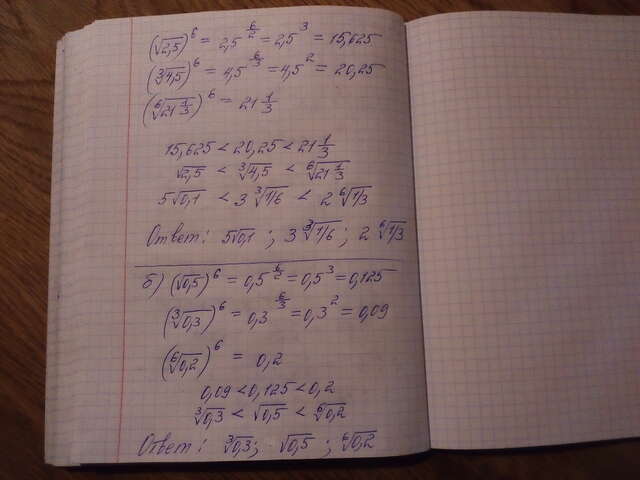 (√2,5)⁶ = 2,5^(6/2) = 2,5³ = 15,625
(∛4,5)⁶ = 4,5^(6/3) = 4,5² = 20,25
(⁶√21 1/3)⁶ = 21 1/3
15,625 < 20,25 < 21 1/3
√2,5 < ∛4,5 < ⁶√21 1/3
5√0,1 < 3 ∛1/6 < 2 ⁶√1/3
Ответ: 5√0,1 ; 3 ∛1/6 ; 2 ⁶√1/3
б) (√0,5)⁶ = 0,5^(6/2) = 0,5³ = 0,125
(∛0,3)⁶ = 0,3^(6/3) = 0,3² = 0,09
(⁶√0,2)⁶ = 0,2
0,09 < 0,125 < 0,2
∛0,3 < √0,5 < ⁶√0,2
Ответ: ∛0,3; √0,5 ; ⁶√0,2